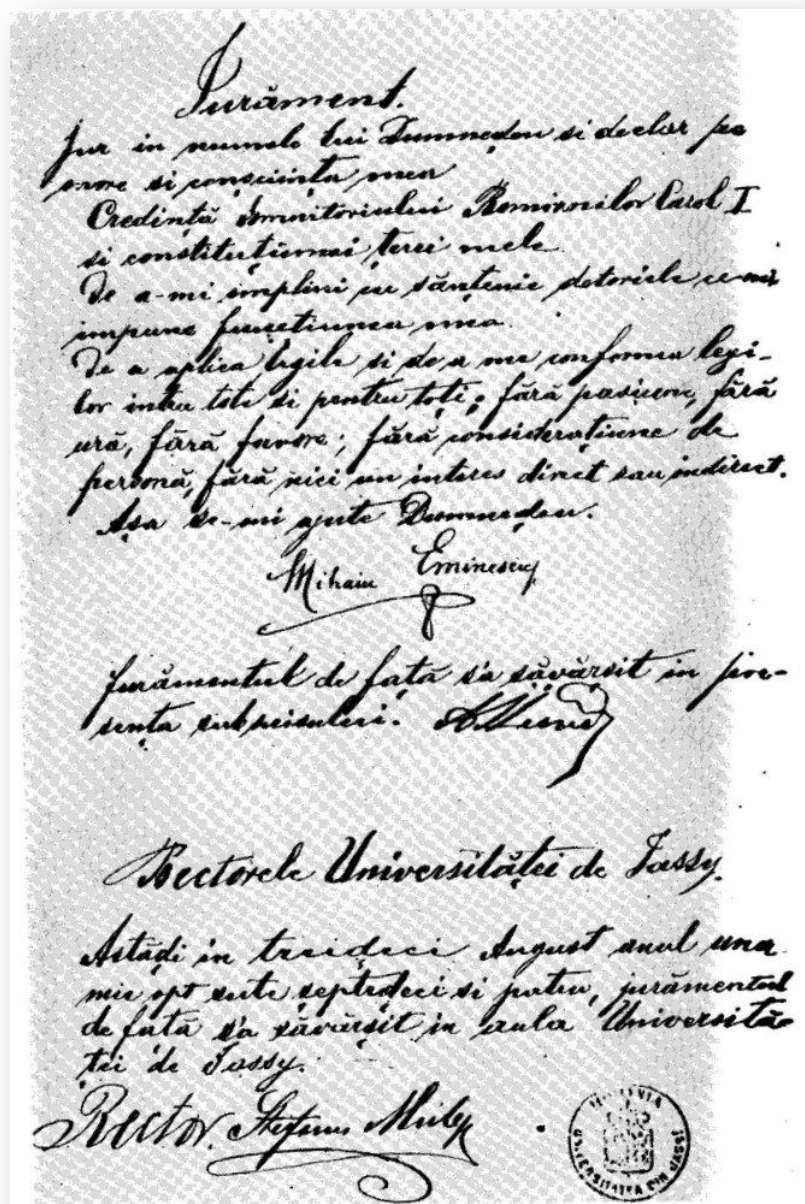 Jurăment.
Jur in numele lui Dumnedeu si declar pe
onore si consciința mea
Credință Domnitoriului Romîniilor Carol I
si constituțiunei țerei mele
De a-mi împlini cu sânțenie detoriele ce-mi
impune funcțiunea mea.
De a aplica legile si de a me conforma legi-
lor intru tote si pentru toti; fără pasiune, fără
ură, fără favore; fără considerațiune de
personă, fără nici un interes direct sau indirect.
Așa se-mi ajute Dumnedeu.
Mihaiu Eminescu
Jurămentul de față s'a săvârșit in pre-
sența subscrisului.
Rectorele Universităței de Jassy.
Astădi in treideci August anul una
mie opt sute șeptedeci si patru, jurămentul
de față s'a săvârsit in aula Universită-
ței de Jassy.
Rector, Ștefanu Micle
UNIVERSITATEA DIN JASSI